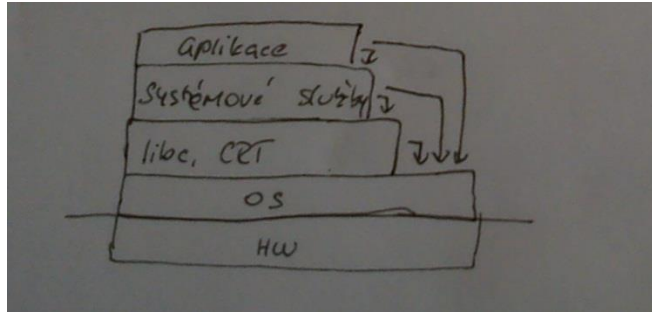 aplikace
systémové služby
libc, CRT
OS
HW